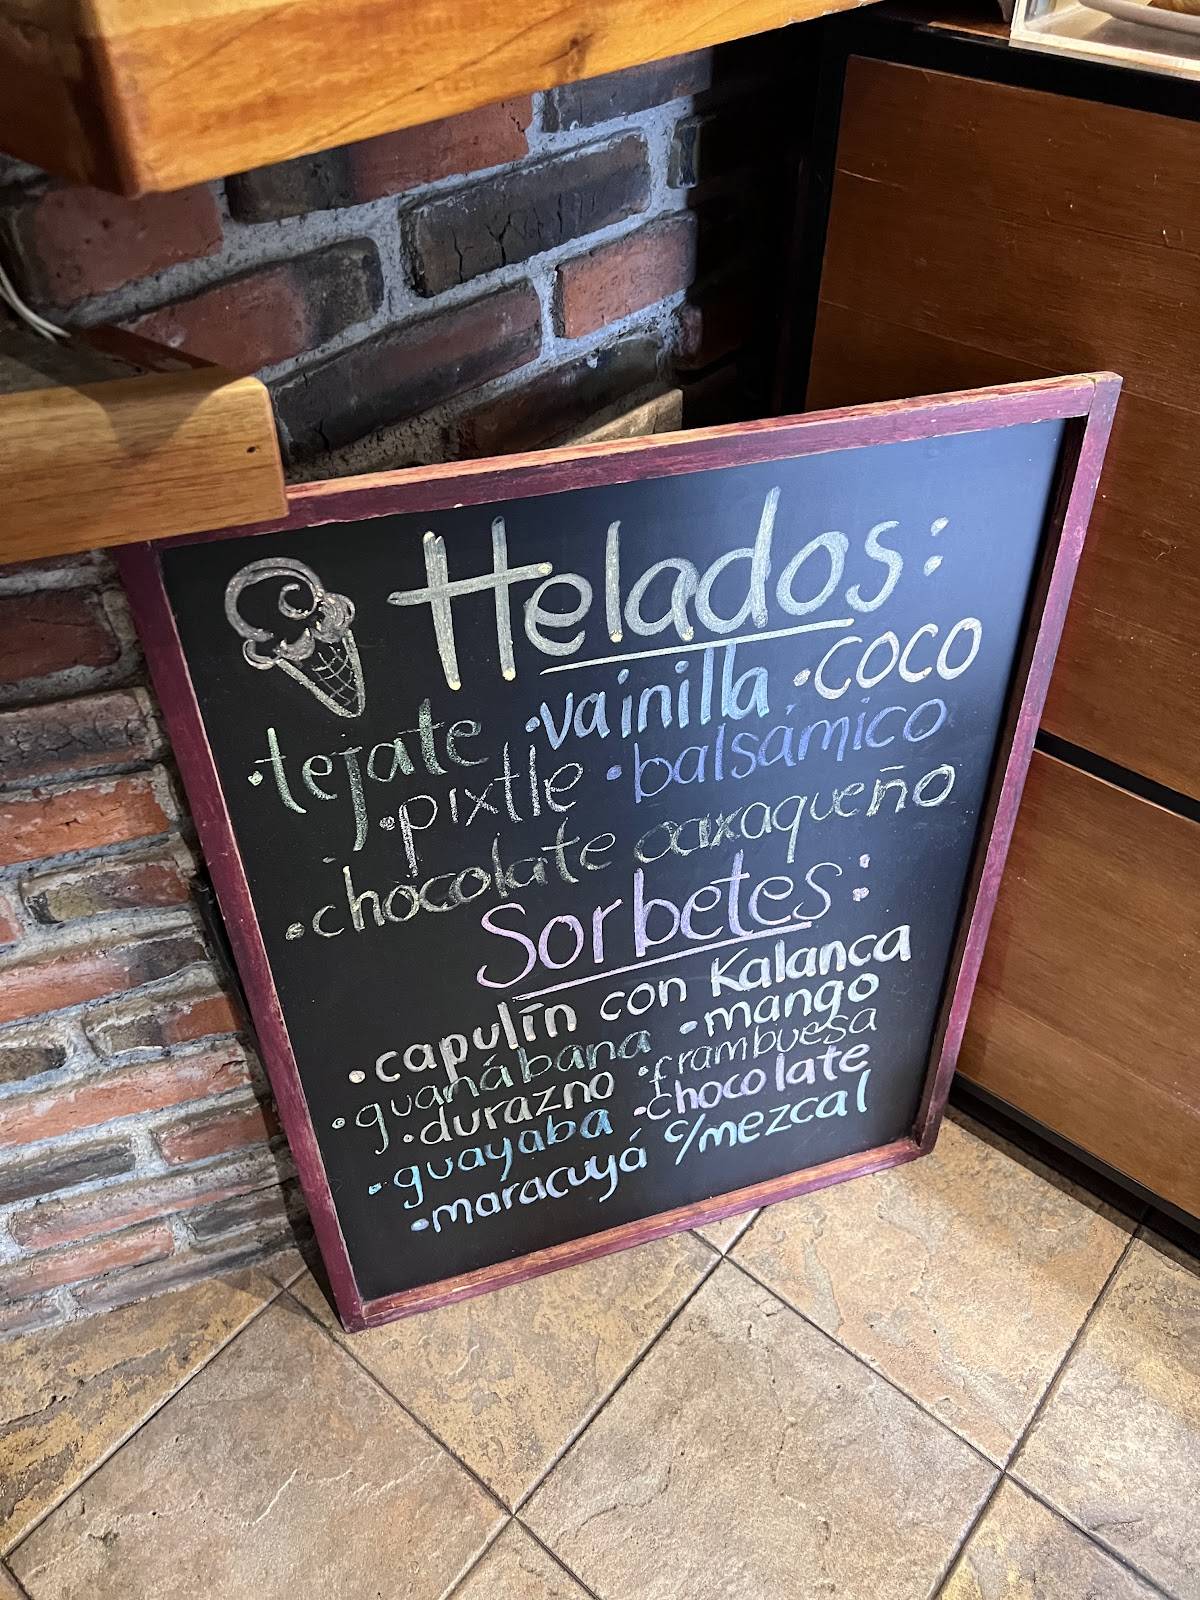 Helados:
•tejate •vainilla •coco
•pixtle •balsámico
•chocolate oaxaqueño
Sorbetes:
•capulín con Kalanca
•guanábana •mango
•durazno •frambuesa
•guayaba •chocolate
•maracuyá c/mezcal